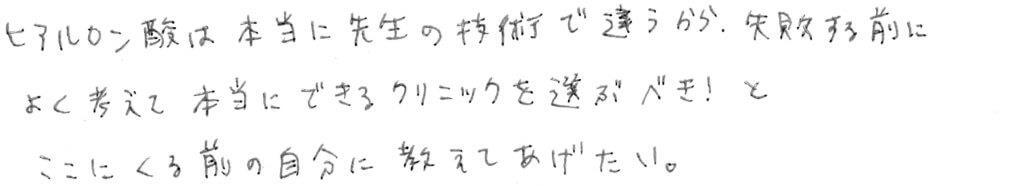 ヒアルロン酸は本当に先生の技術で違うから、失敗する前に
よく考えて本当にできるクリニックを選ぶべき！と
ここにくる前の自分に教えてあげたい。